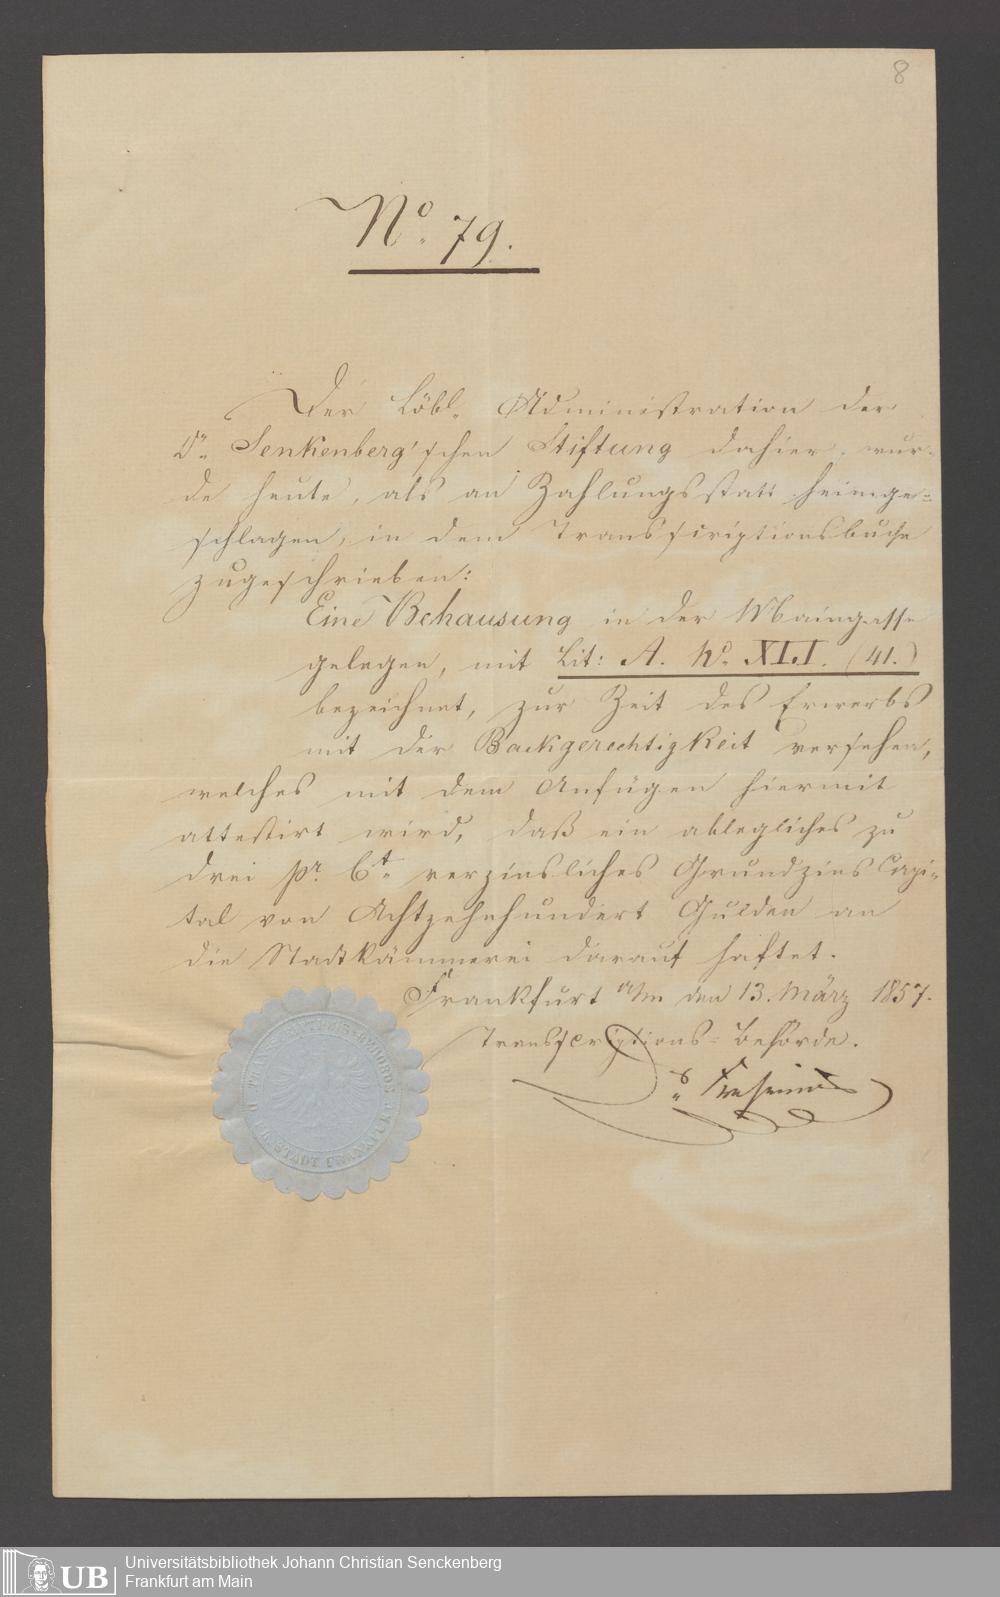 8
No. 79.
Der Löbl. Administration der
Dr. Senkenberg'schen Stiftung dahier, wur-
de heute, als an Zahlungsstatt heimge-
schlagen, in dem Transscriptionsbuche
zugeschrieben:
Eine Behausung in der Maingasse
gelegen, mit Lit: A. No. XLI. (41.)
bezeichnet, zur Zeit des Erwerbs
mit der Backgerechtigkeit versehen,
welches mit dem Anfügen hiermit
attestirt wird, daß ein ablegliches zu
drei pr. Ct. verzinsliches Grundzins Capi-
tal von Achtzehnhundert Gulden an
die Stadtkämmerei darauf haftet.
Frankfurt a/m den 13. März 1857.
Transscriptions-Behörde.
Dr.
D. TRANSSCRIPTIONS-BEHÖRDE
DER STADT FRANKFURT
Universitätsbibliothek Johann Christian Senckenberg
Frankfurt am Main
UB